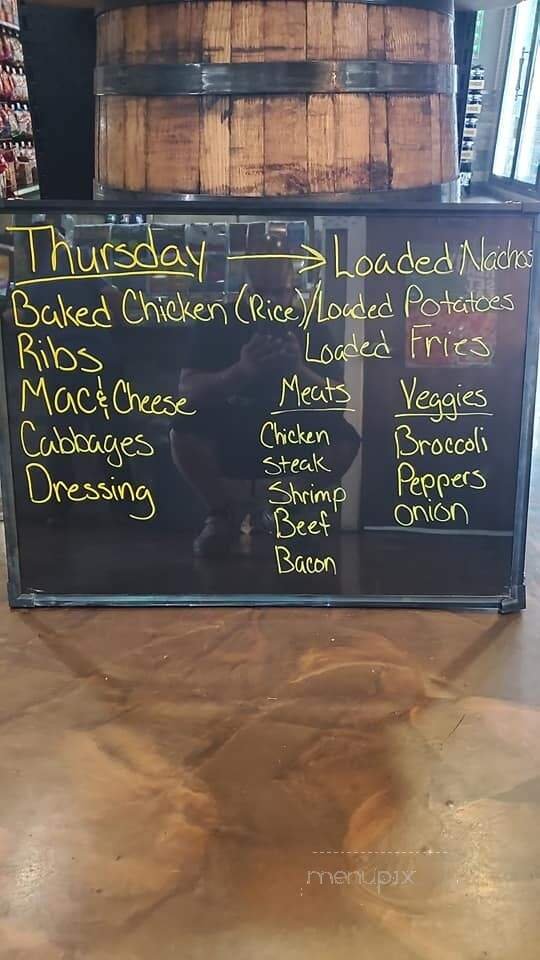 Thursday → Loaded Nachos
Baked Chicken (Rice)/Loaded Potatoes
Ribs
Loaded Fries
Mac & Cheese
Cabbages
Dressing
Meats
Chicken
Steak
Shrimp
Beef
Bacon
Veggies
Broccoli
Peppers
Onion
menupix